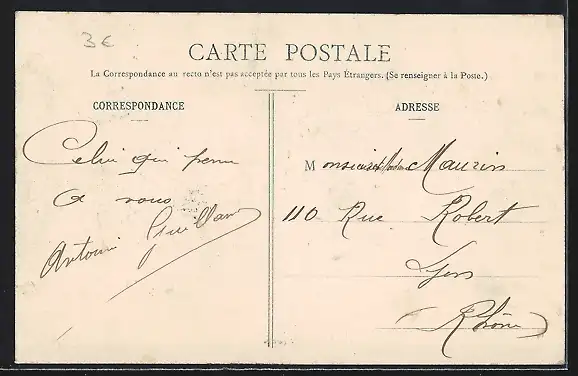 3€
CARTE POSTALE
La Correspondance au recto n'est pas acceptée par tous les Pays Étrangers. (Se renseigner à la Poste.)
CORRESPONDANCE
Celui qui pense
a vous
Antonin
ADRESSE
Monsieur Maurin
110 Rue Robert
Lyon
Rhône